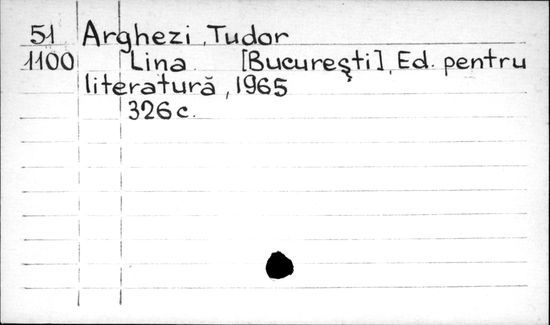 51 Arghezi, Tudor
1100 Lina [Bucureşti], Ed. pentru
literatură, 1965
326 c.